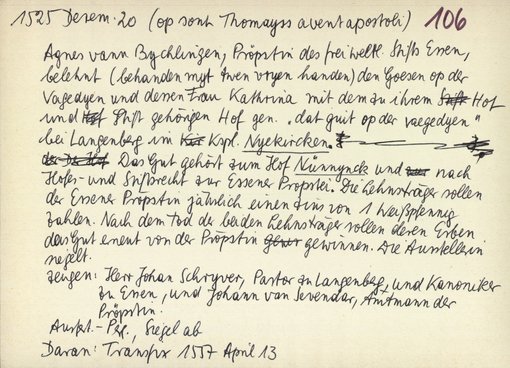 1525 Dezem. 20 (op sont Thomayss avent apostoli) 106
Agnes vann Bychlingen, Pröpstin des freiweltl. Stifts Essen,
belehnt (behanden myt twen vryen handen) den Goesen op der
Vaegedyen und dessen Frau Kathrina mit dem zu ihrem Stift Hof
und Hof Stift gehörigen Hof gen. "dat guit op der vaegedyen"
bei Langenberg im Kir Kspl. Nyekircken.
Das Gut gehört zum Hof Nünnynck und nach
Hofes- und Stiftsrecht zur Essener Propstei. Die Lehnsträger sollen
der Essener Pröpstin jährlich einen Zins von 1 Weißpfennig
zahlen. Nach dem Tod der beiden Lehnsträger sollen deren Erben
das Gut erneut von der Pröpstin gewinnen. Die Ausstellerin
siegelt.
Zeugen: Herr Johan Schryver, Pastor zu Langenberg, und Kanoniker
zu Essen, und Johann van Sevendar, Amtmann der
Pröpstin.
Ausf. - Pg., Siegel ab
Daran: Transfix 1557 April 13